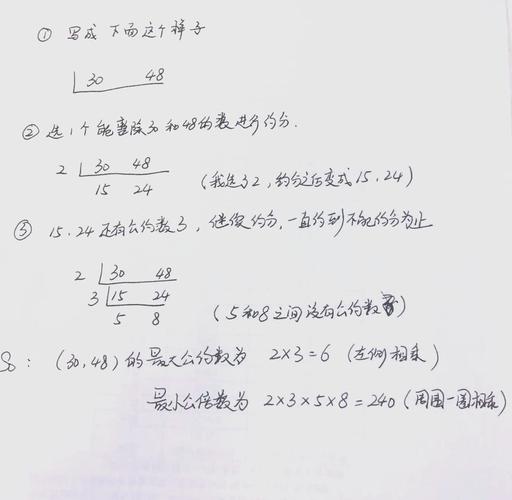 ① 写成 下面这个样子
30 48
② 选1个能整除30和48的数进行约分.
2 30 48
15 24 (我选了2,约分之后变成15.24)
③ 15.24还有公约数3,继续约分,一直约到不能约分为止
2 30 48
3 15 24
5 8 (5和8之间没有公约数)
So: (30,48)的最大公约数为 2×3=6 (左侧相乘)
最小公倍数为 2×3×5×8=240 (周围一圈相乘)